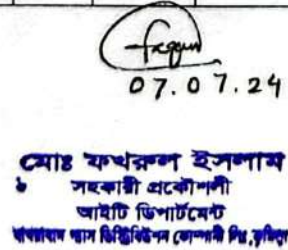 07.07.24
মোঃ ফখরুল ইসলাম
সহকারী প্রকৌশলী
আইটি ডিপার্টমেন্ট
বাখরাবাদ গ্যাস ডিস্ট্রিবিউশন কোম্পানী লিঃ, কুমিল্লা